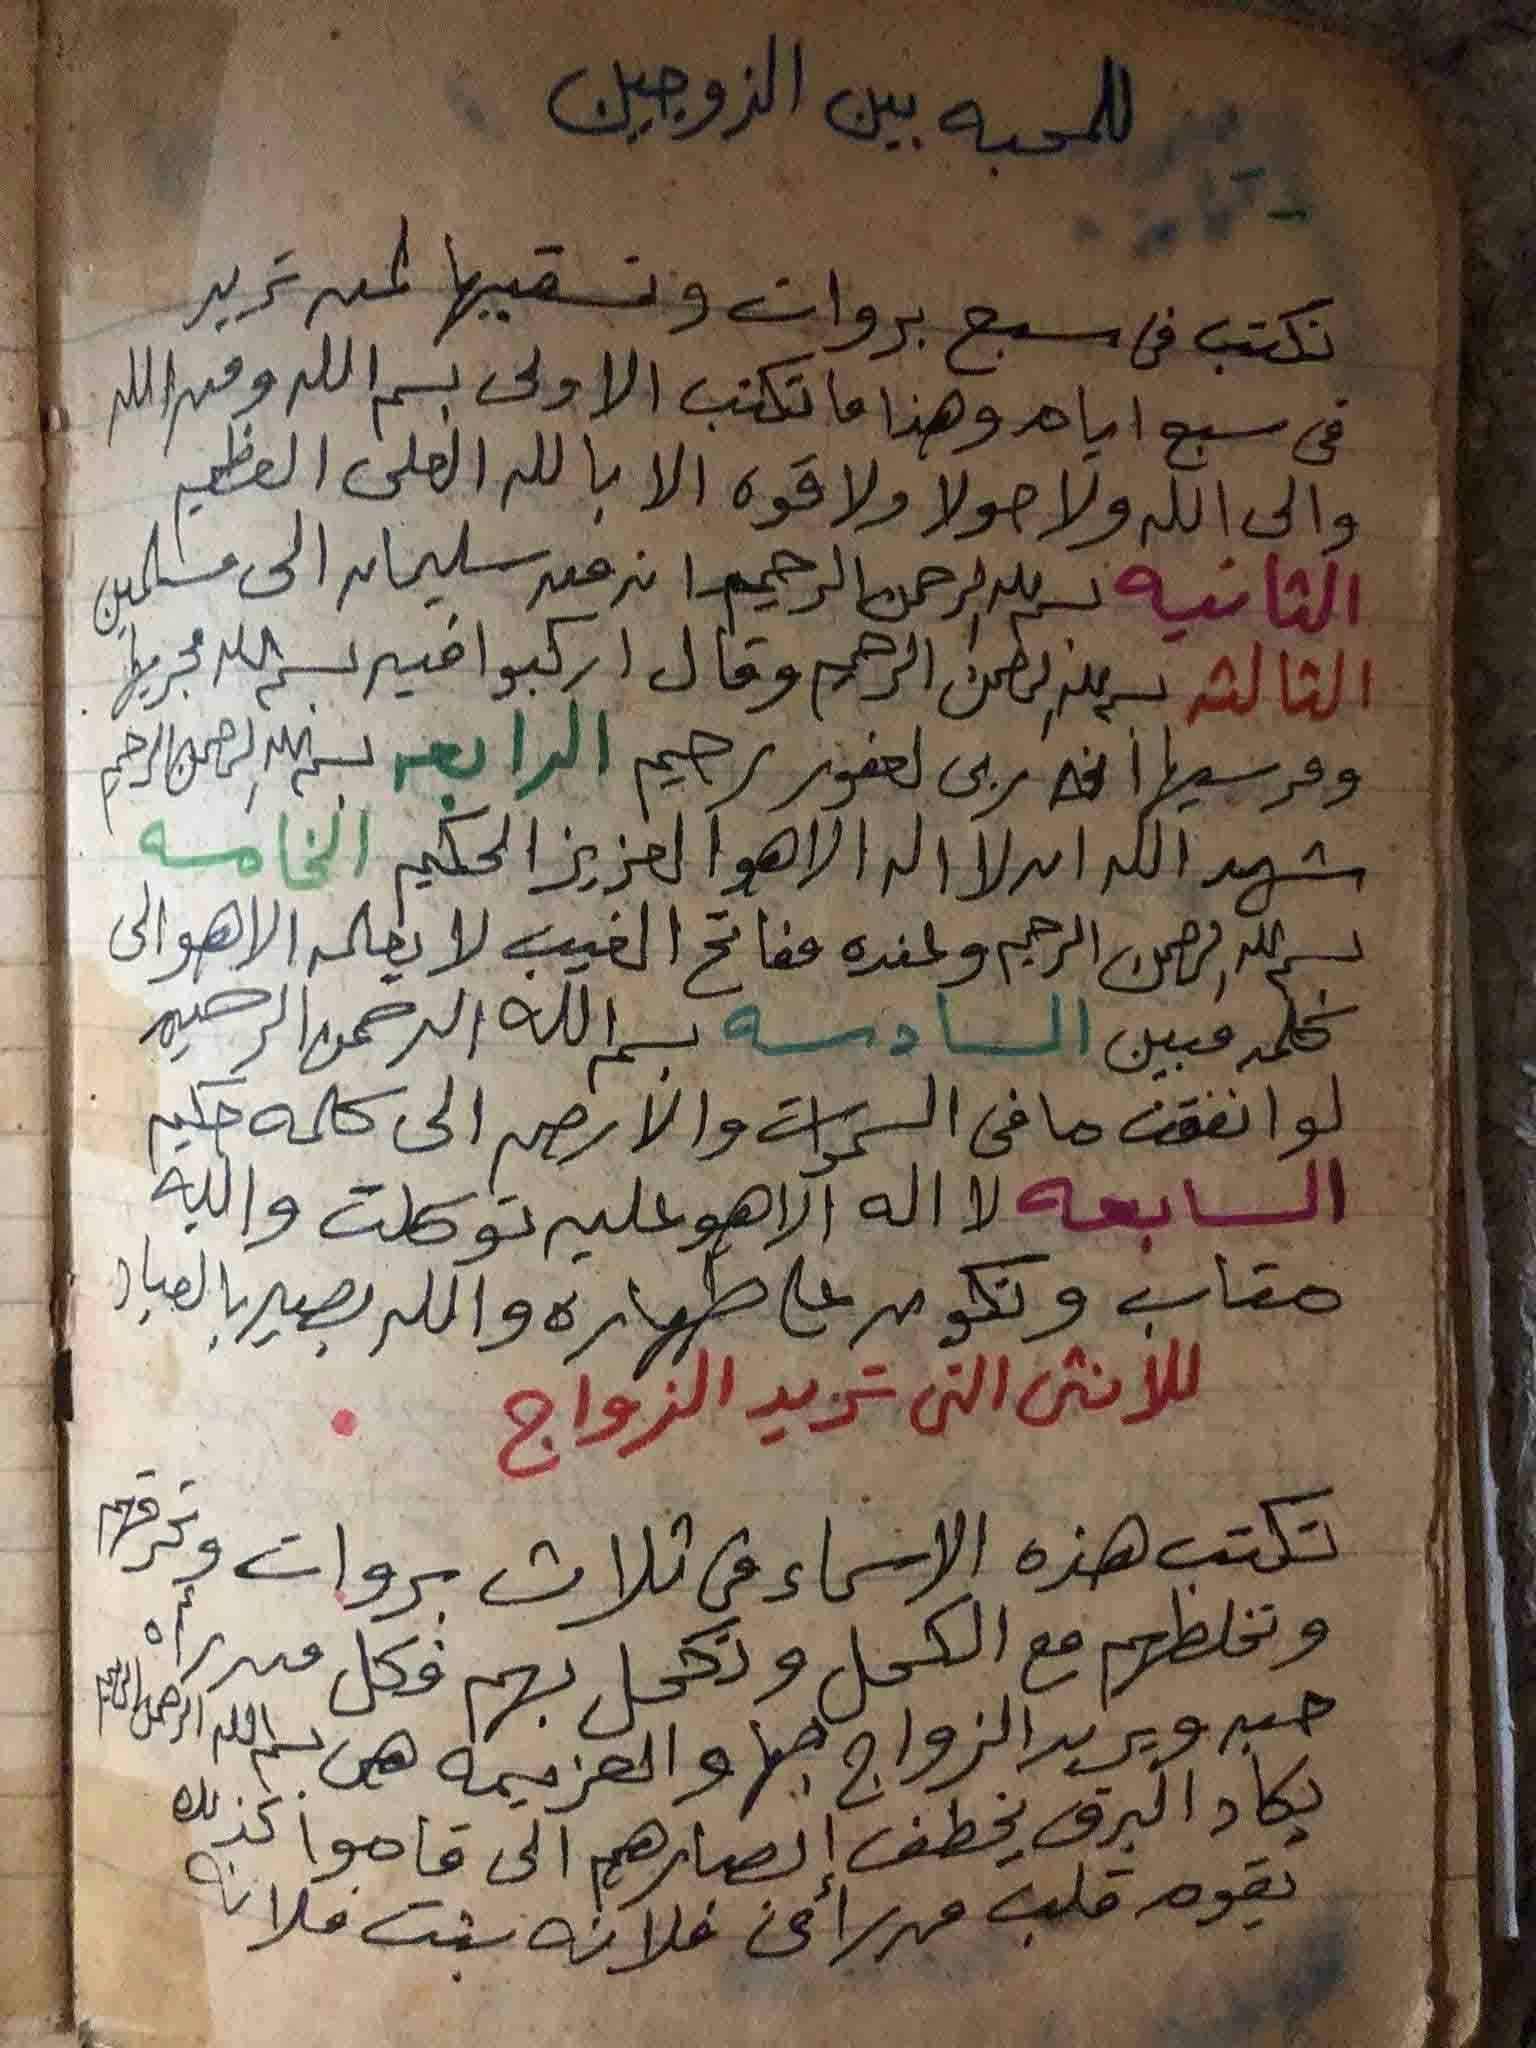 للمحبه بين الزوجين
تكتب فى سبع بروات وتسقيها لمن تريد
فى سبع ايام وهذا ما تكتب الاولى بسم الله ومن الله
والى الله ولا حولا ولا قوه الا بالله العلى العظيم
الثانيه بسم الله الرحمن الرحيم انه من سليمان الى مسلمين
الثالثه بسم الله الرحمن الرحيم وقال اركبوا فيه بسم الله مجريها
ومرسيها ربى لغفور رحيم الرابعه بسم الله الرحمن الرحيم
شهد الله ان لا اله الا هو العزيز الحكيم الخامسه
بسم الله الرحمن الرحيم وعنده مفاتح الغيب لا يعلمه الا هو الى
كلمه مبين السادسه بسم الله الرحمن الرحيم
لو انفقت ما فى السموات والأرض الى كلمه حكيم
السابعه لا اله الا هو عليه توكلت واليه
متاب وتكون على طهاره والله بصير بالعباد
للأنثى التى تريد الزواج
تكتب هذه الاسماء فى ثلاث بروات وتحرقهم
وتخلطهم مع الكحل وتكحل بهم فكل من رأه
حبه ويريد الزواج بها والعزيمه هى بسم الله الرحمن الرحيم
يكاد البرق يخطف إبصارهم الى قاموا كذلك
يقوم قلب من رأى فلانه بنت فلانه